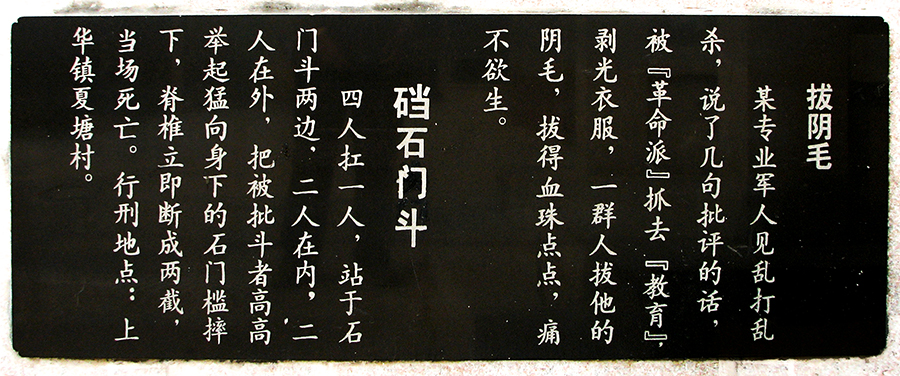 拔阴毛
某专业军人见乱打乱
杀，说了几句批评的话，
被『革命派』抓去『教育』，
剥光衣服，一群人拔他的
阴毛，拔得血珠点点，痛
不欲生。
硰石门斗
四人扛一人，站于石
门斗两边，二人在内，二
人在外，把被批斗者高高
举起猛向身下的石门槛摔
下，脊椎立即断成两截，
当场死亡。行刑地点：上
华镇夏塘村。